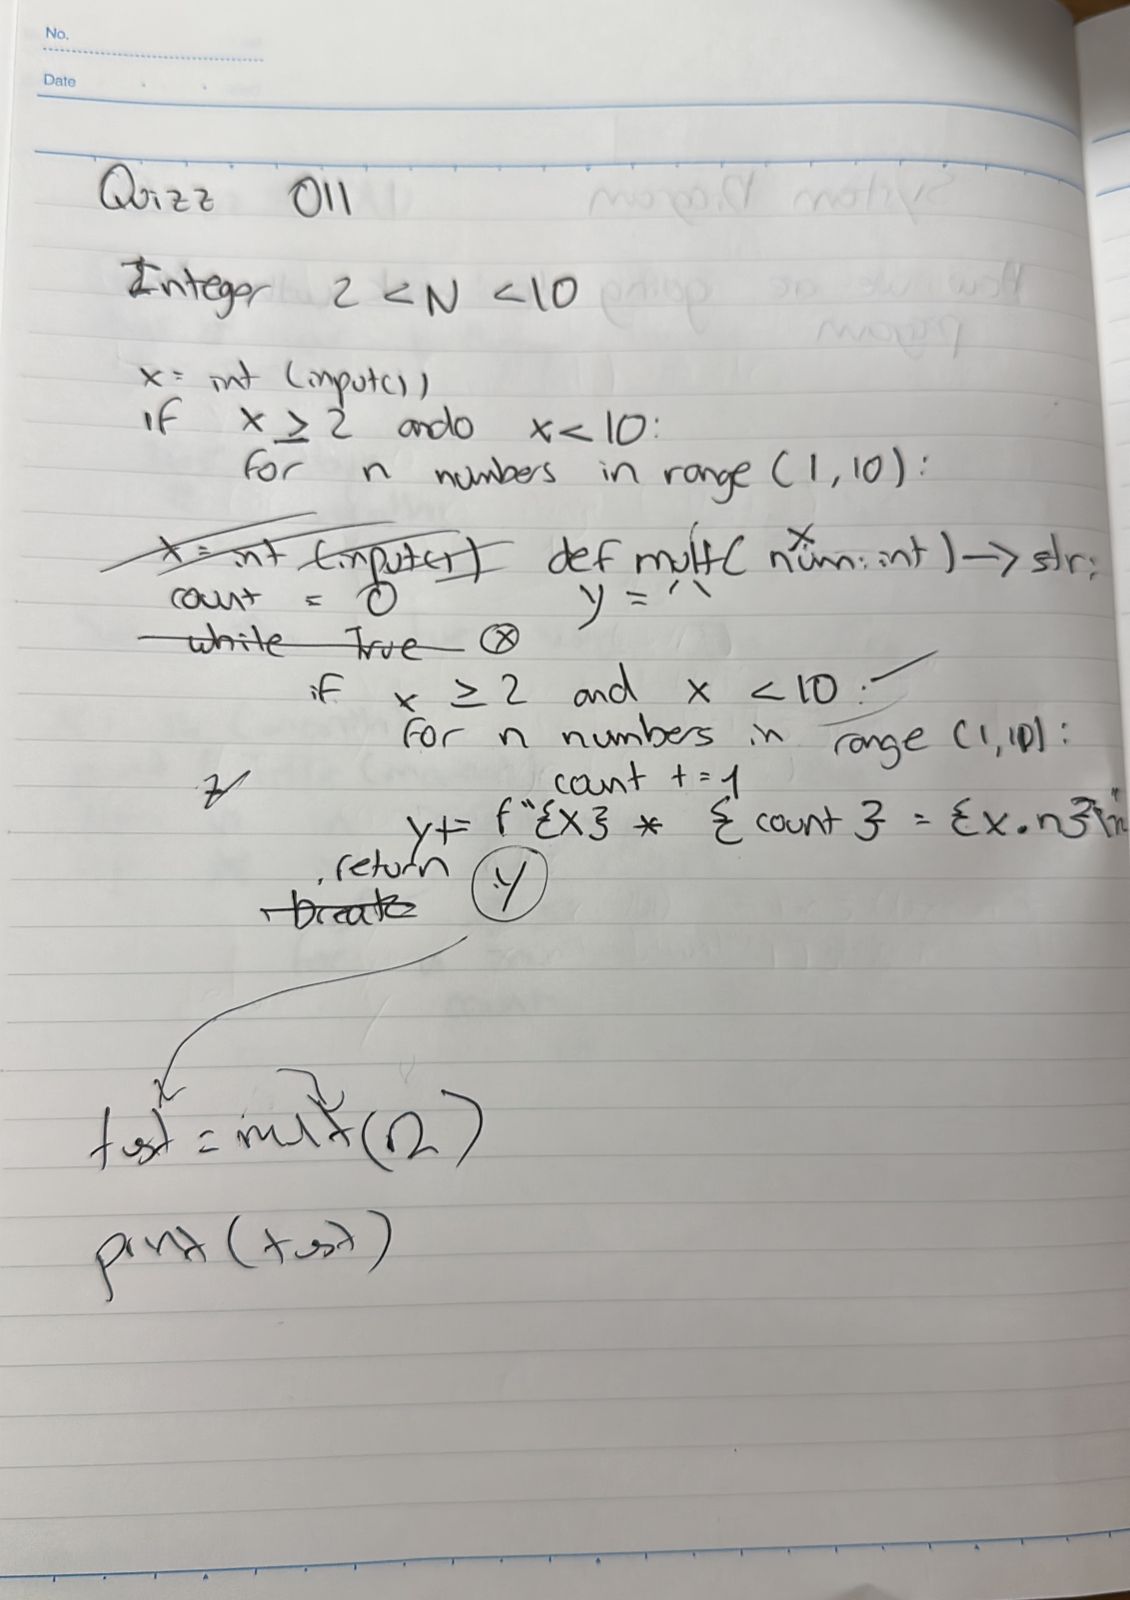 No.
Date
Quizz 011
Integer 2 < N < 10
x = int (input())
if x ≥ 2 and x < 10:
for n numbers in range (1, 10):
x = int (input()) def mult( num x: int) -> str:
count = 0 y = ''
while True
if x ≥ 2 and x < 10:
for n numbers in range (1, 10):
count += 1
y += f"{x} * {count} = {x.n}\n"
return y
break
test = mult(n)
print(test)